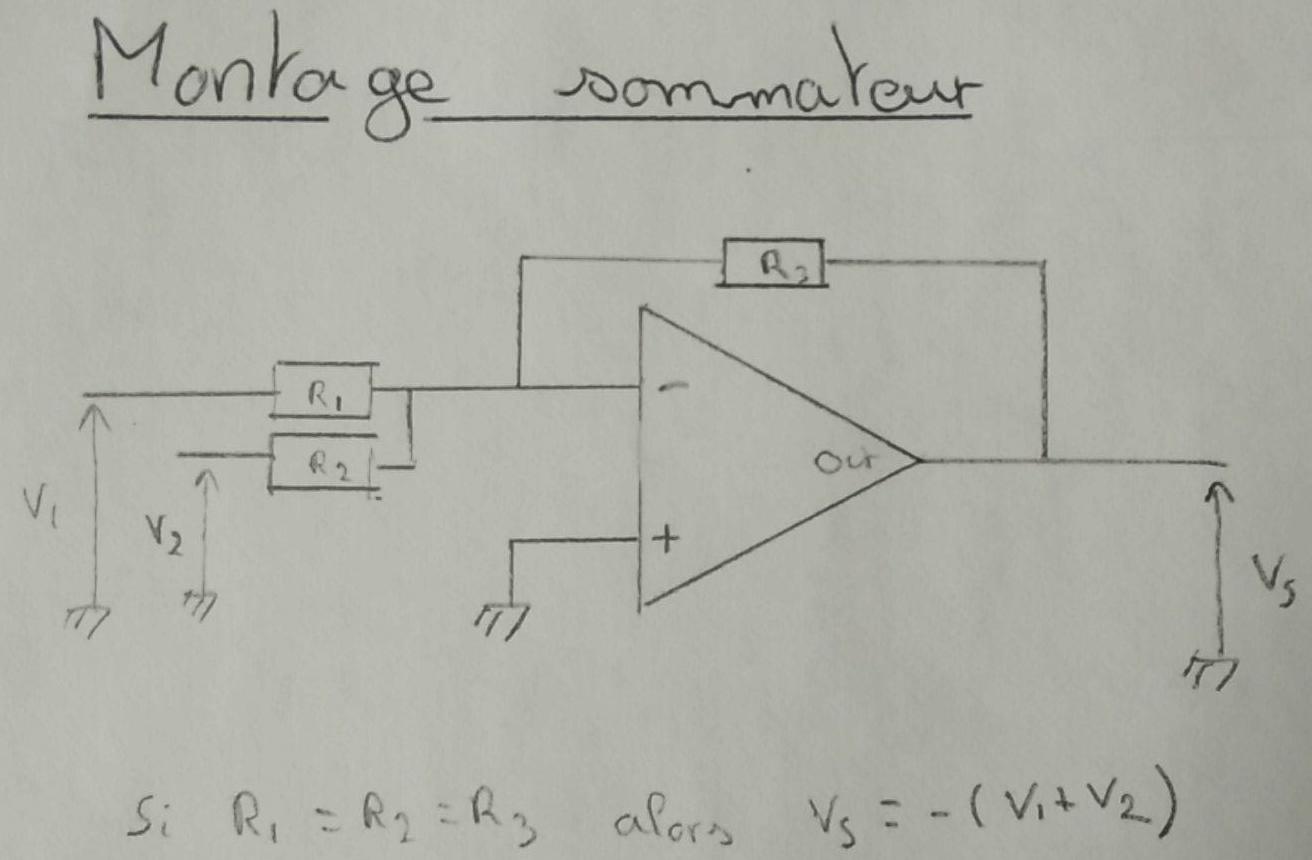 Montage sommateur
R3
R1
-
R2
Out
V1
V2
+
Vs
Si R1 = R2 = R3 alors Vs = -(V1 + V2)